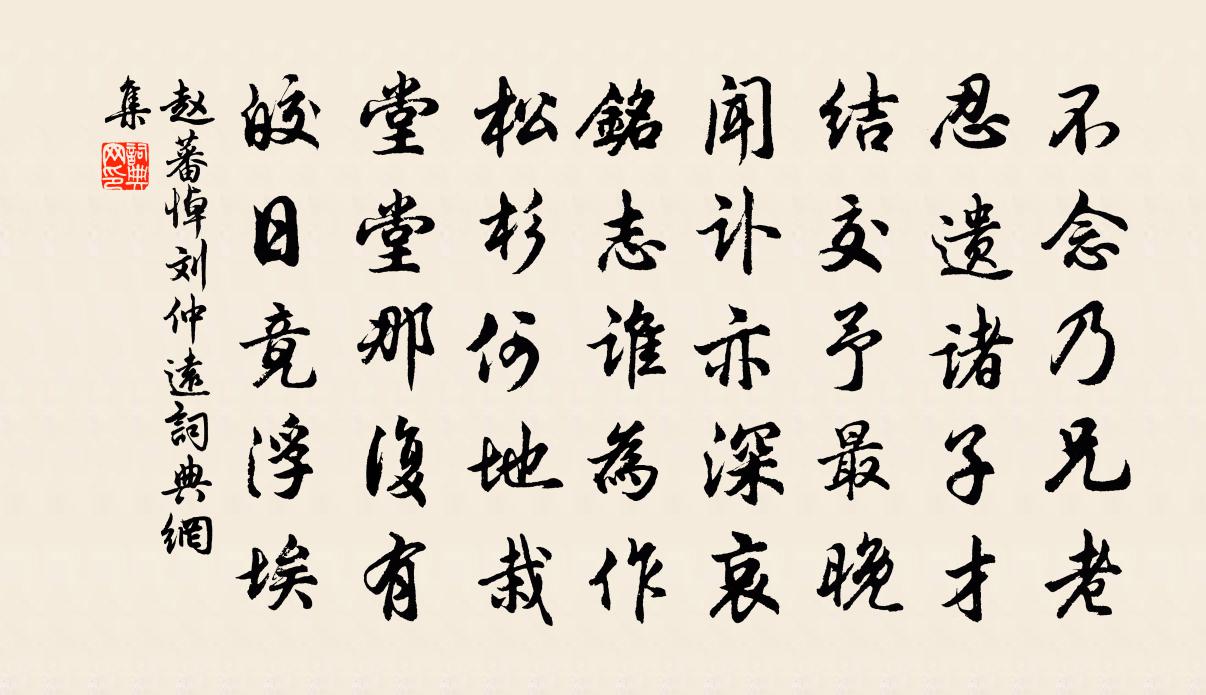 不念乃兄老
忍遗诸子才
结交予最晚
闻讣亦深哀
銘志谁為作
松杉何地栽
堂堂那復有
皎日竟浮埃
赵蕃悼刘仲遠詞典網
集
詞典
网印